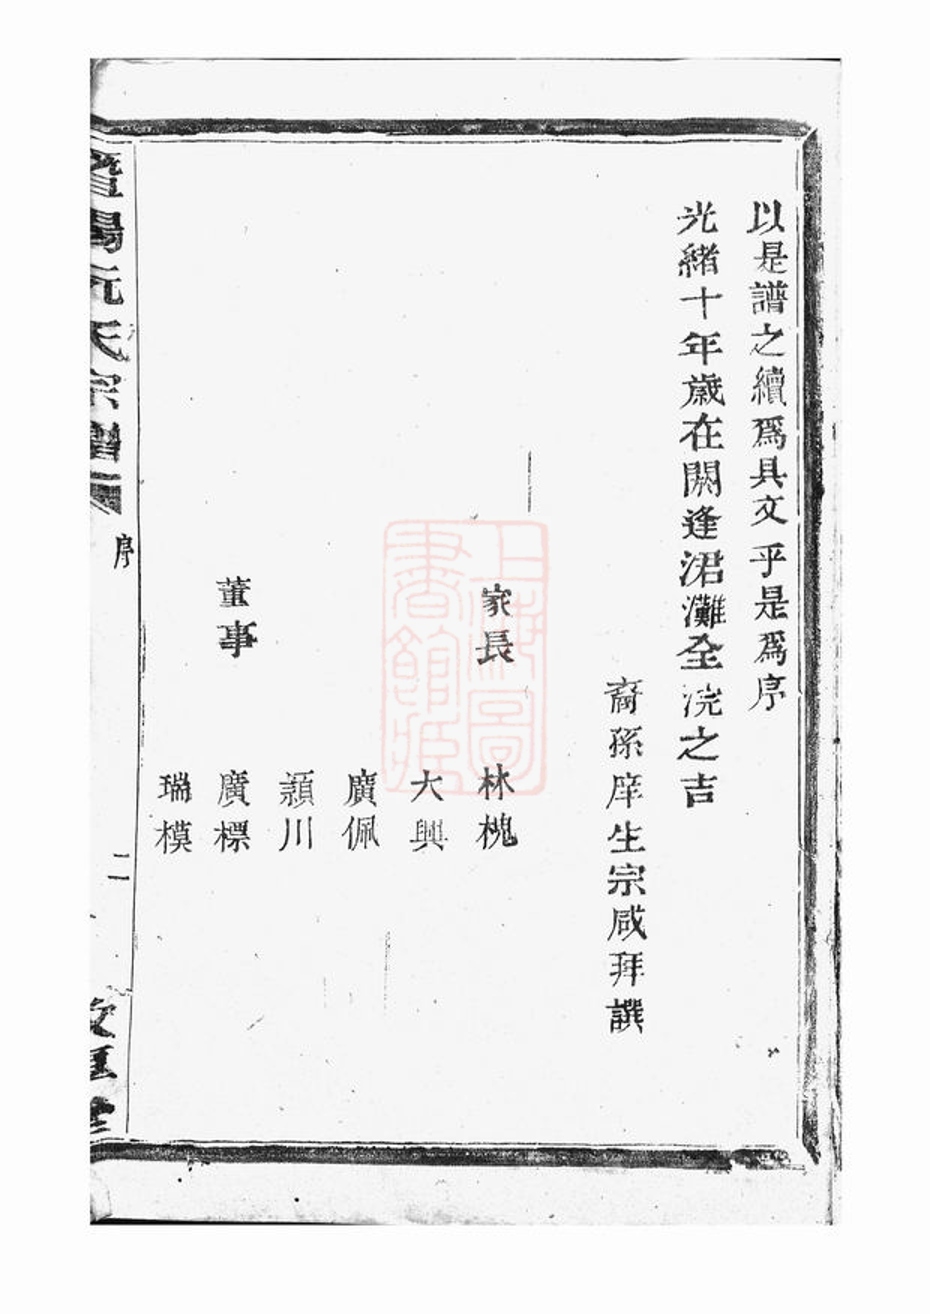 以是譜之續爲具文乎是爲序
光緒十年歲在閼逢涒灘全浣之吉
裔孫庠生宗咸拜譔
家長 林槐
大興
廣佩
潁川
董事 廣標
瑞模
暨陽阮氏宗譜 序 二
上海圖書館